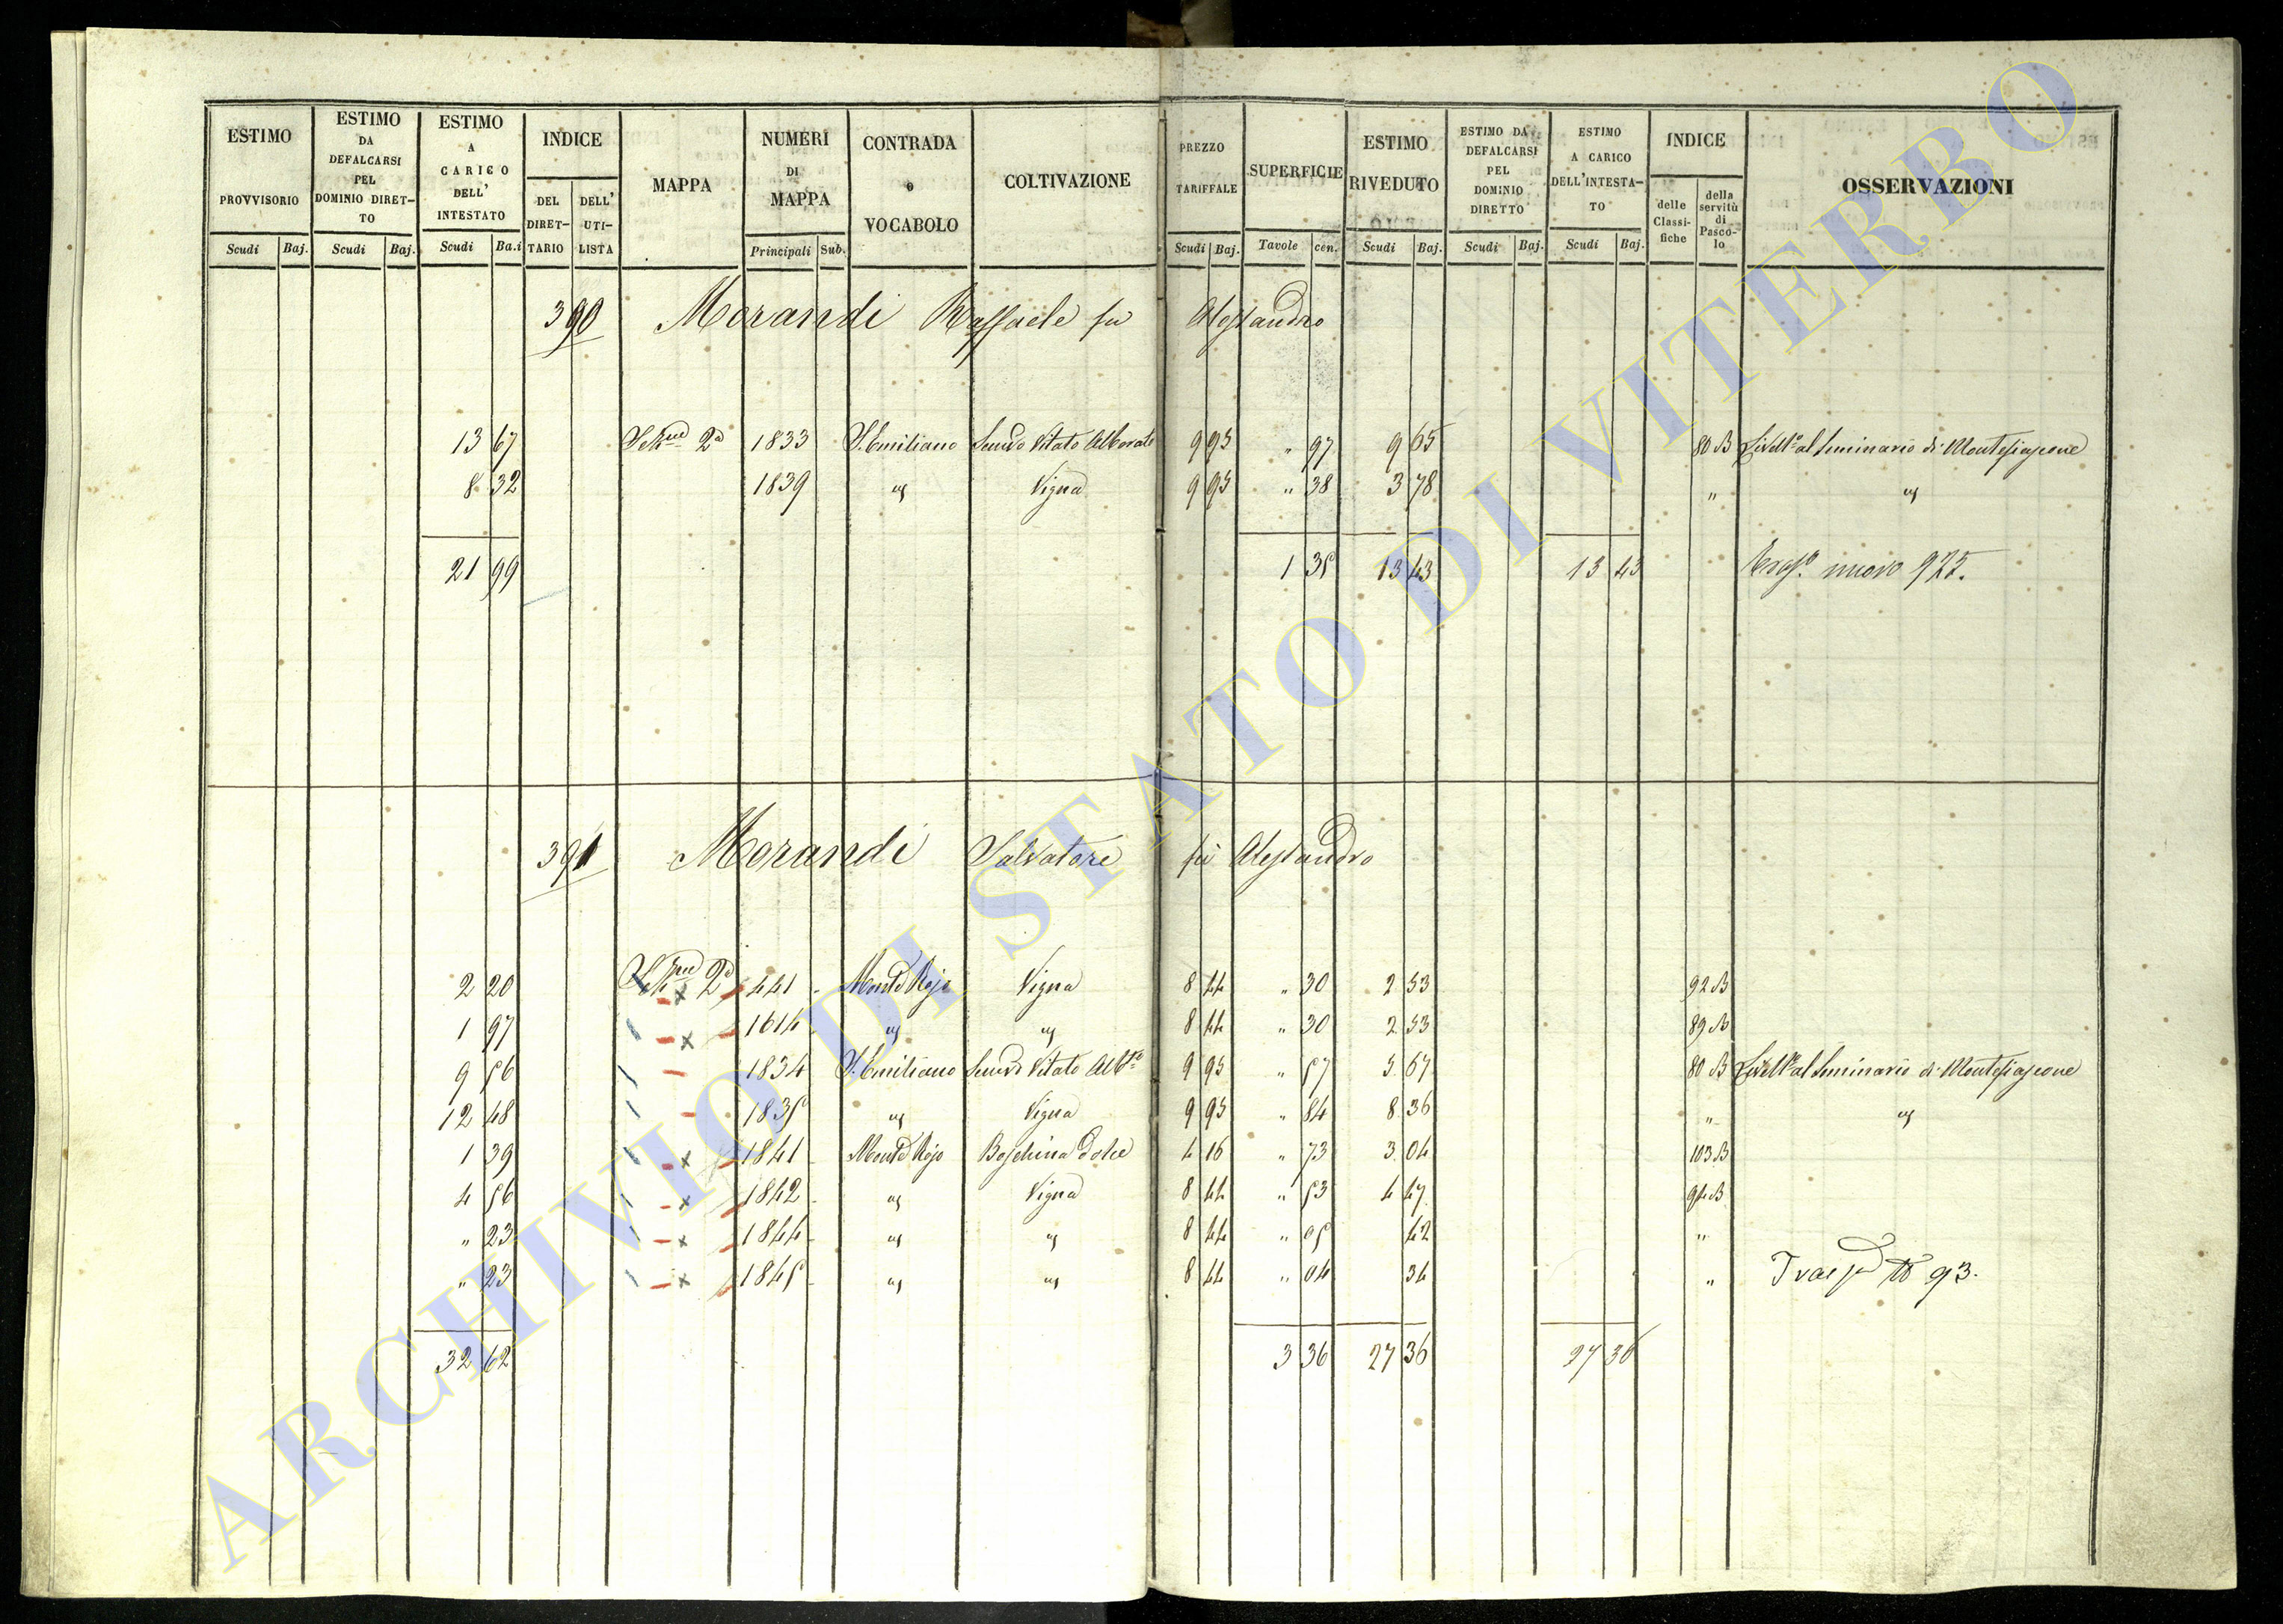 ESTIMO PROVVISORIO Scudi Baj.
ESTIMO DA DEFALCARSI PEL DOMINIO DIRET-TO Scudi Baj.
ESTIMO A CARICO DELL' INTESTATO Scudi Ba.i
INDICE DEL DIRET-TARIO DELL' UTI-LISTA
MAPPA
NUMERI DI MAPPA Principali Sub.
CONTRADA o VOCABOLO
COLTIVAZIONE
PREZZO TARIFFALE Scudi Baj.
SUPERFICIE Tavole cen.
ESTIMO RIVEDUTO Scudi Baj.
ESTIMO DA DEFALCARSI PEL DOMINIO DIRETTO Scudi Baj.
ESTIMO A CARICO DELL'INTESTA-TO Scudi Baj.
INDICE delle Classi-fiche della servitù di Pasco-lo
OSSERVAZIONI
390 Morandi Raffaele fu Alessandro
13 67 Sez.ne 2a 1833 S. Emiliano Semvo Vitato Alborato 9 95 " 97 9 65 80 B Livell.o al Seminario di Montefiascone
8 32 1839 " Vigna 9 95 " 38 3 78 " "
21 99 1 35 13 43 13 43 nuovo 925.
391 Morandi Salvatore fù Alessandro
2 20 Sez.ne 2a 441 Monte Rojo Vigna 8 44 " 30 2 53 92 B
1 97 1614 " " 8 44 " 30 2 53 89 B
9 56 1834 S. Emiliano Semvo Vitato Alb.to 9 95 " 57 5 67 80 B Livell.o al Seminario di Montefiascone
12 48 1835 " Vigna 9 95 " 84 8 36 " "
1 39 1841 Monte Rojo Boschina dolce 4 16 " 73 3 04 103 B
4 56 1842 " Vigna 8 44 " 53 4 47 94 B
" 23 1844 " " 8 44 " 05 42 "
" 23 1845 " " 8 44 " 04 34 " 93.
32 62 3 36 27 36 27 36
ARCHIVIO DI STATO DI VITERBO